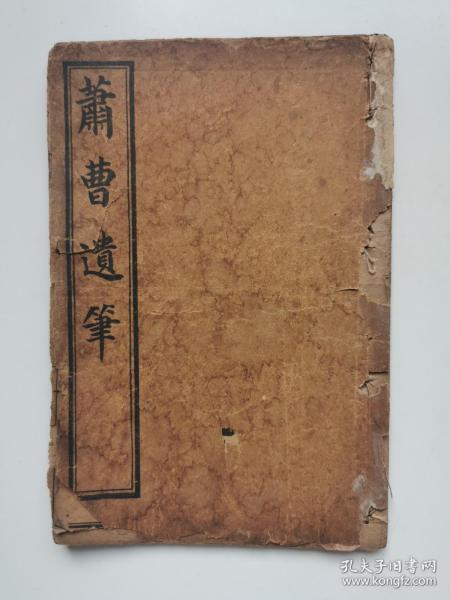 蕭曹遺筆
孔夫子旧书网
www.kongfz.com